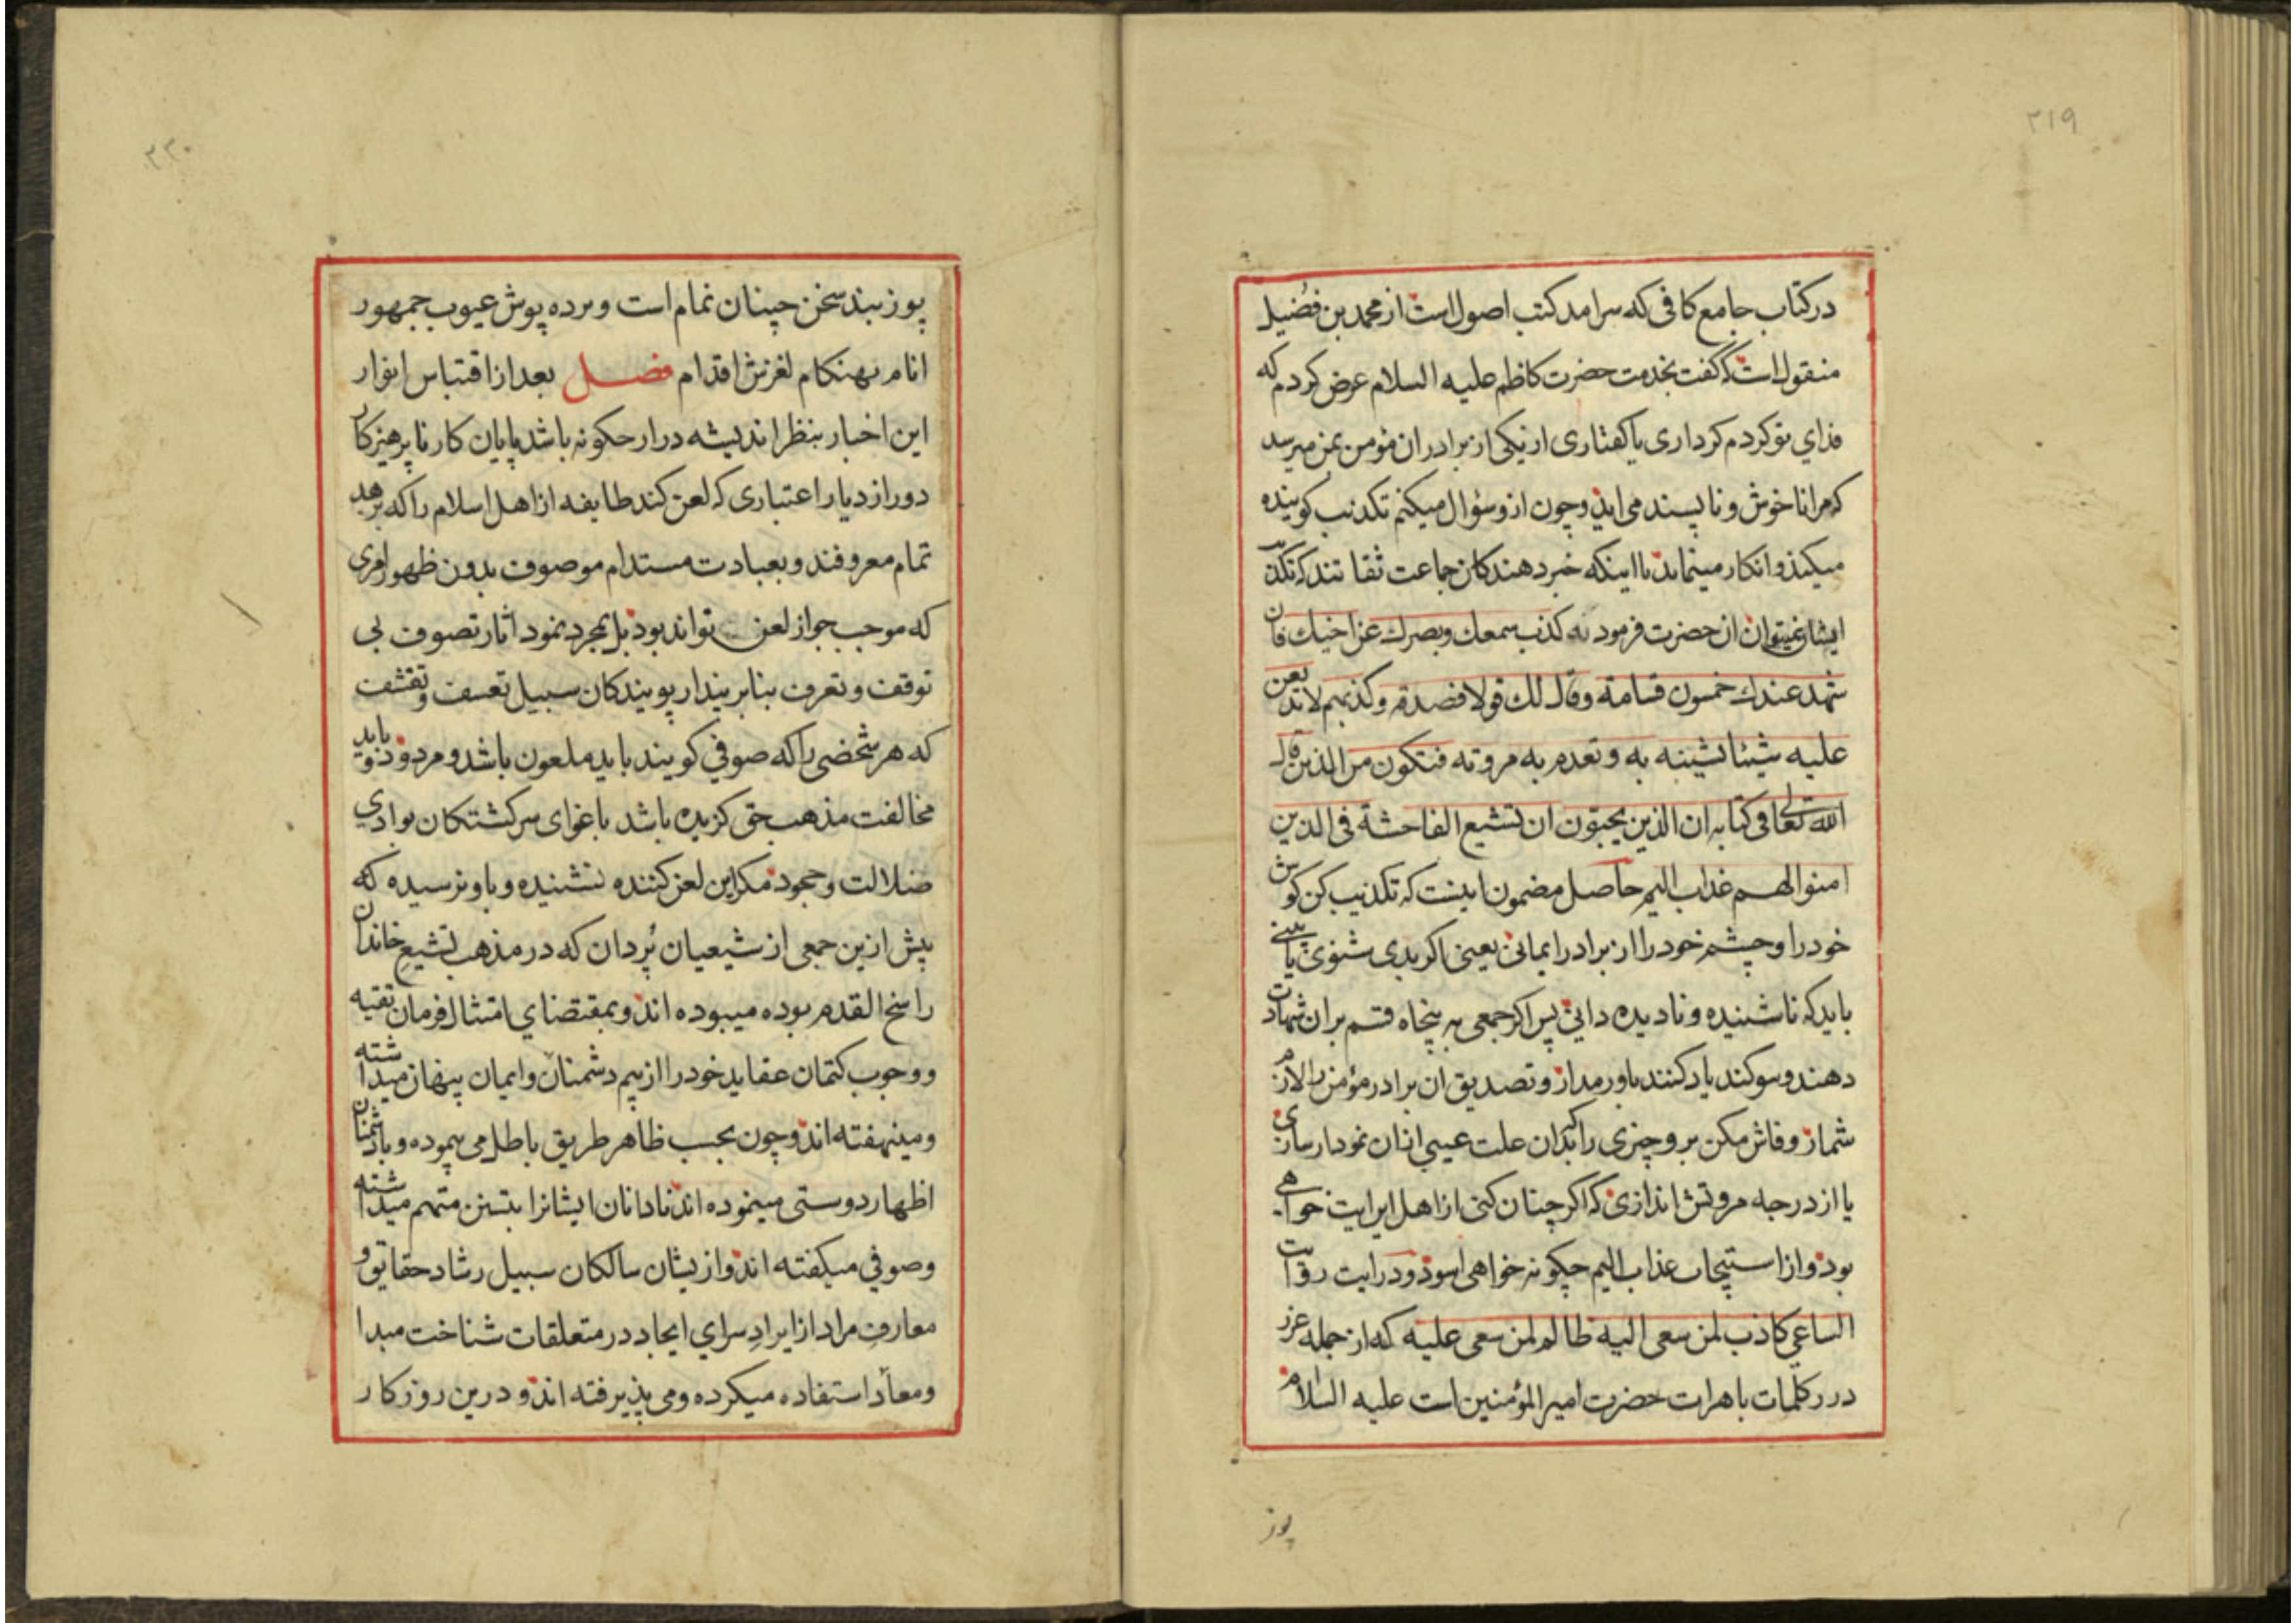 ۲۱۹
در کتاب جامع کافی که سرامد کتب اصول است از محمد بن فضیل
منقول است که گفت بخدمت حضرت کاظم علیه السلام عرض کردم که
فدای تو کردم کرداری یا کفتاری از یکی از برادران مؤمن بمن میرسد
که مرا ناخوش و ناپسند می اید و چون از و سؤال میکنم تکذیب کوینده
میکند و انکار مینماید با اینکه خبر دهندکان جماعت ثقاتند که تکذیب
ایشان نمیتوان ان حضرت فرمود که کذب سمعك وبصرك عن اخیك فان
شهد عندك خمسون قسامة وقال لك قولا فصدقه وكذبهم لا تذیعن
علیه شیئا تشینه به وتهدم به مروته فتكون من الذین قال
الله تعالی فی کتابه ان الذین یحبون ان تشیع الفاحشة فی الذین
امنوا لهم عذاب الیم حاصل مضمون اینست که تکذیب کن کوش
خود را و چشم خود را از برادر ایمانی یعنی اکر بدی شنوی یا بینی
باید که ناشنیده و نادیده دانی پس اکر جمعی به پنجاه قسم بران شهادت
دهند و سوکند یاد کنند باور مدار و تصدیق ان برادر مؤمن را لازم
شمار و فاش مکن بر و چیزی را که بدان علت عیبی ازان نمودار سازی
یا از درجه مروتش اندازی که اکر چنان کنی از اهل این ایت خواهی
بود و از استیجاب عذاب الیم چکونه خواهی اسود و درایت روایت
الساعی کاذب لمن سعی الیه ظالم لمن سعی علیه که از جمله غرر
درر کلمات باهرات حضرت امیر المؤمنین است علیه السلام
پوز
۲۲۰
پوزبند سخن چینان نمام است و پرده پوش عیوب جمهور
انام بهنکام لغزش اقدام فصل بعد از اقتباس انوار
این اخبار بنظر اندیشه درار چکونه باشد پایان کار ناپرهیزکار
دور از دیار اعتباری که لعن کند طایفه از اهل اسلام را که بزهد
تمام معروفند و بعبادت مستدام موصوف بدون ظهور امری
که موجب جواز لعن تواند بود بل بمجرد نمود اثار تصوف بی
توقف و تعرف بنا بر پندار پویندکان سبیل تعسف و تقشف
که هر شخصی را که صوفی کویند باید ملعون باشد و مردود و باید
مخالفت مذهب حق کزیده باشد باغوای سرکشتکان بوادی
ضلالت و جحود مکر این لعن کننده نشنیده و باو نرسیده که
پیش ازین جمعی از شیعیان پُردان که در مذهب تشیع خاندان
راسخ القدم بوده میبوده اند و بمقتضای امتثال فرمان تقیه
و وجوب کتمان عقاید خود را از بیم دشمنان و ایمان پنهان میداشته
و مینهفته اند و چون بحسب ظاهر طریق باطل می پیموده و با دشمنان
اظهار دوستی مینموده اند نادانان ایشانرا بتسنن متهم میداشته
و صوفی میکفته اند و ازیشان سالکان سبیل رشاد حقایق و
معارف مراد از ایراد سرای ایجاد در متعلقات شناخت مبدا
و معاد استفاده میکرده و می پذیرفته اند و درین روزکار